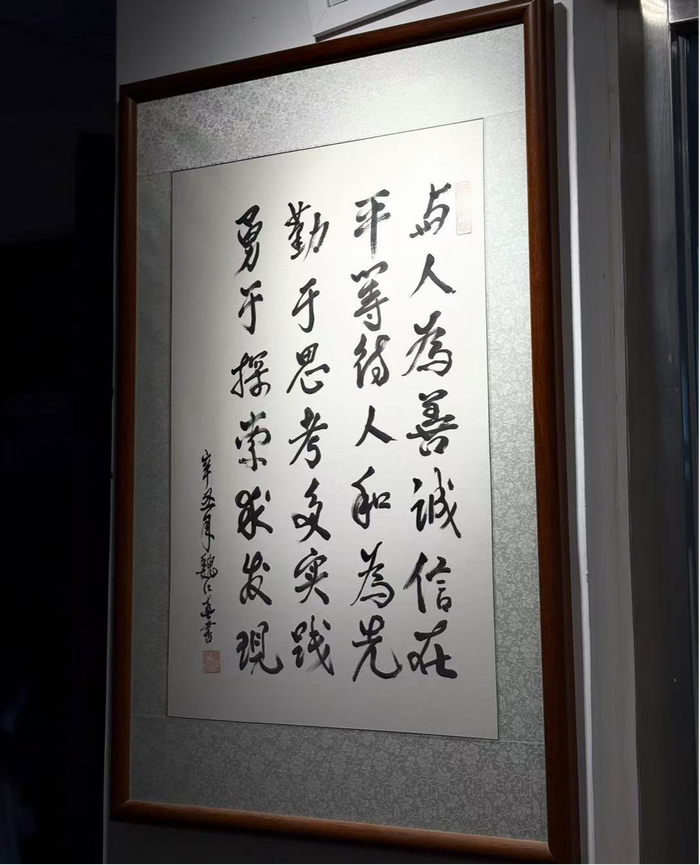 与人為善誠信在
平等待人和為先
勤于思考多实践
勇于探索求发現
辛丑年魏仁书